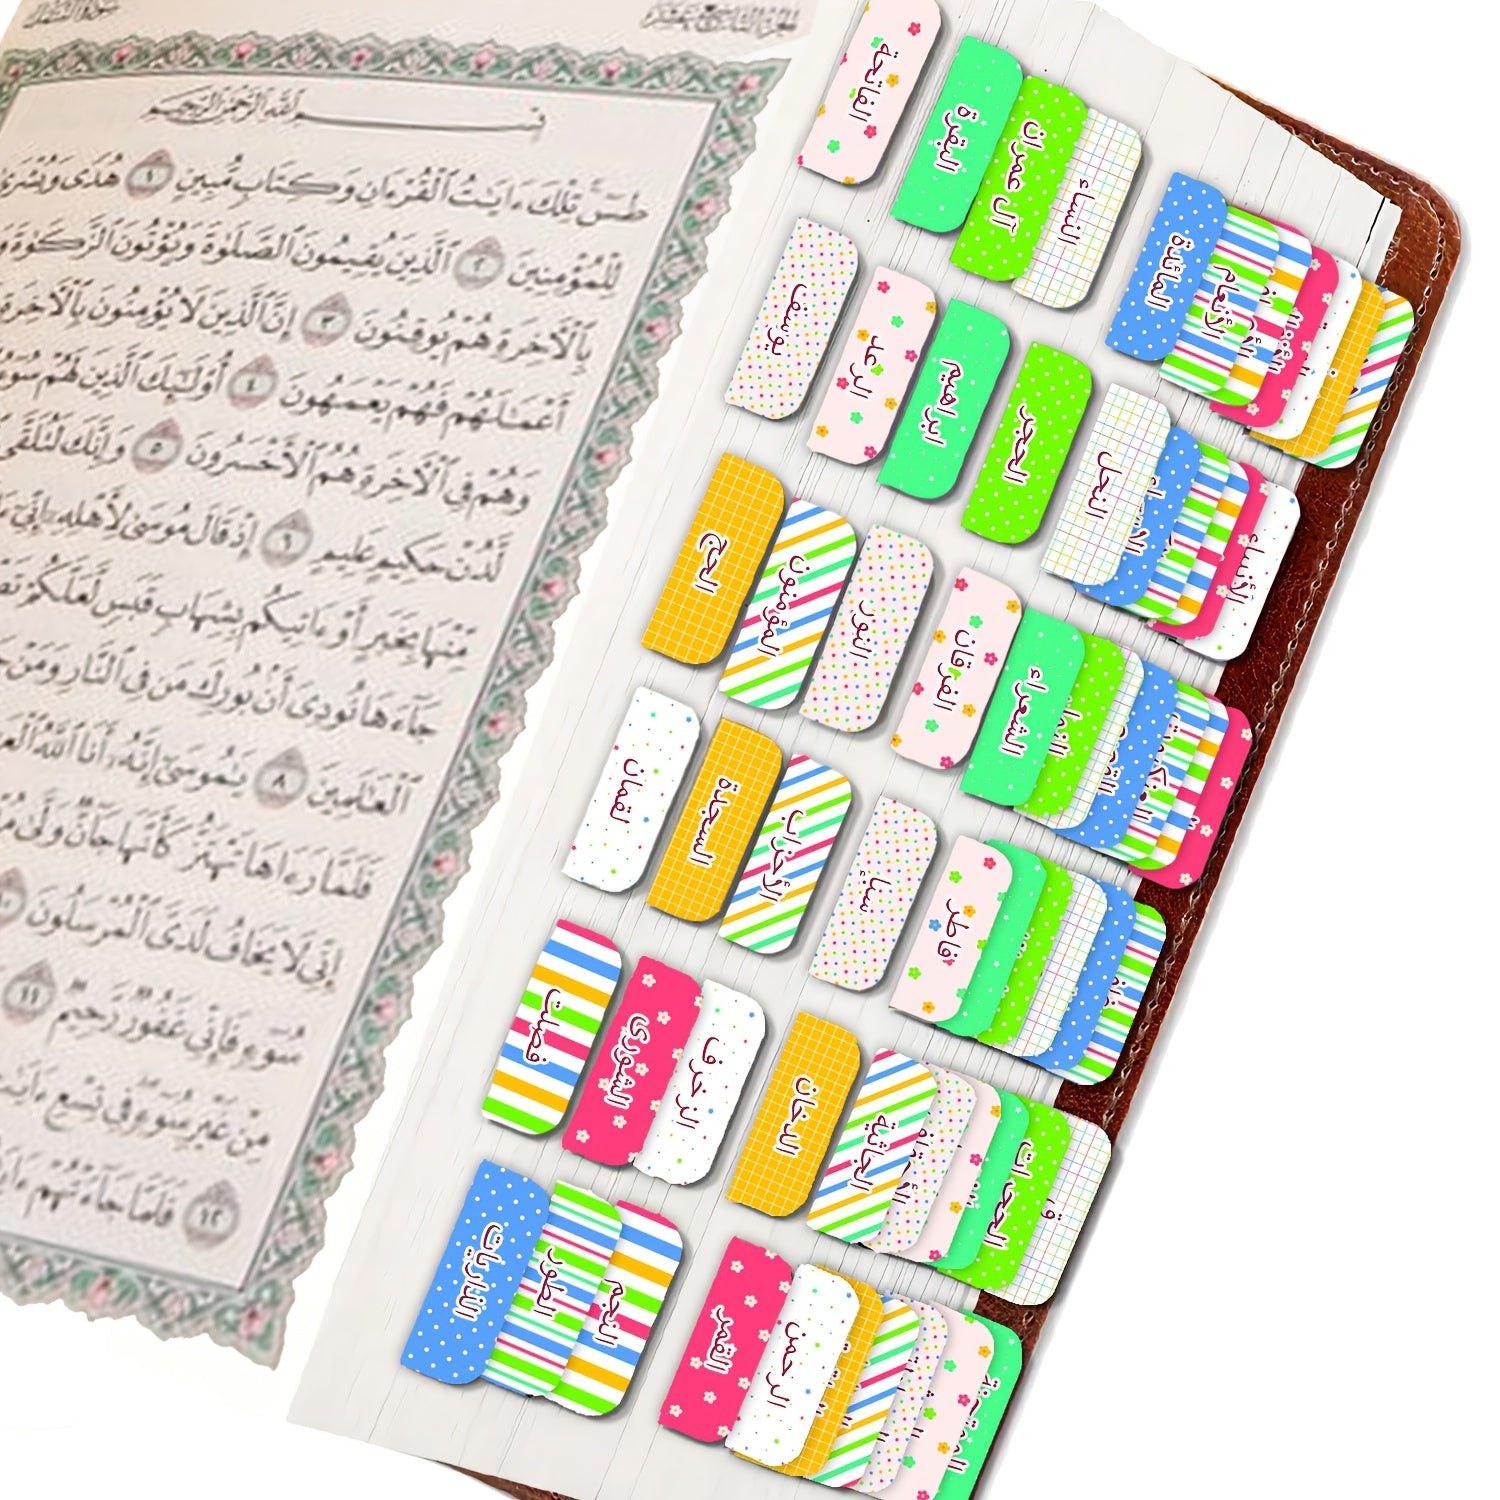 سورة النمل
الجزء التاسع عشر
بسم الله الرحمن الرحيم
طسٓ تِلْكَ ءَايَٰتُ ٱلْقُرْءَانِ وَكِتَابٍ مُّبِينٍ ١ هُدًى وَبُشْرَىٰ
لِلْمُؤْمِنِينَ ٢ ٱلَّذِينَ يُقِيمُونَ ٱلصَّلَوٰةَ وَيُؤْتُونَ ٱلزَّكَوٰةَ
ٱلْأَخِرَةِ هُمْ يُوقِنُونَ ٣ إِنَّ ٱلَّذِينَ لَا يُؤْمِنُونَ بِٱلْأَخِرَةِ
أَعْمَٰلَهُمْ فَهُمْ يَعْمَهُونَ ٤ أُوْلَٰٓئِكَ ٱلَّذِينَ لَهُمْ سُوٓءُ
وَهُمْ فِى ٱلْأَخِرَةِ هُمُ ٱلْأَخْسَرُونَ ٥ وَإِنَّكَ لَتُلَقَّى
لَّدُنْ حَكِيمٍ عَلِيمٍ ٦ إِذْ قَالَ مُوسَىٰ لِأَهْلِهِۦٓ إِنِّىٓ
مِّنْهَا بِخَبَرٍ أَوْ ءَاتِيكُم بِشِهَابٍ قَبَسٍ لَّعَلَّكُمْ
جَآءَهَا نُودِىَ أَنۢ بُورِكَ مَن فِى ٱلنَّارِ وَمَنْ
ٱلْعَٰلَمِينَ ٨ يَٰمُوسَىٰٓ إِنَّهُۥٓ أَنَا ٱللَّهُ
فَلَمَّا رَءَاهَا تَهْتَزُّ كَأَنَّهَا جَآنٌّ وَلَّىٰ
إِنِّى لَا يَخَافُ لَدَىَّ ٱلْمُرْسَلُونَ
سُوٓءٍ فَإِنِّى غَفُورٌ رَّحِيمٌ ١١
مِنْ غَيْرِ سُوٓءٍ فِى تِسْعِ
١٢ فَلَمَّا جَآءَتْهُمْ
الفاتحة
البقرة
آل عمران
النساء
المائدة
الأنعام
يوسف
الرعد
ابراهيم
الحجر
النحل
الأنبياء
الحج
المؤمنون
النور
الفرقان
الشعراء
لقمان
السجدة
الأحزاب
سبأ
فاطر
فصلت
الشورى
الزخرف
الدخان
الجاثية
الحجرات
ق
الذاريات
الطور
النجم
القمر
الرحمن
الممتحنة